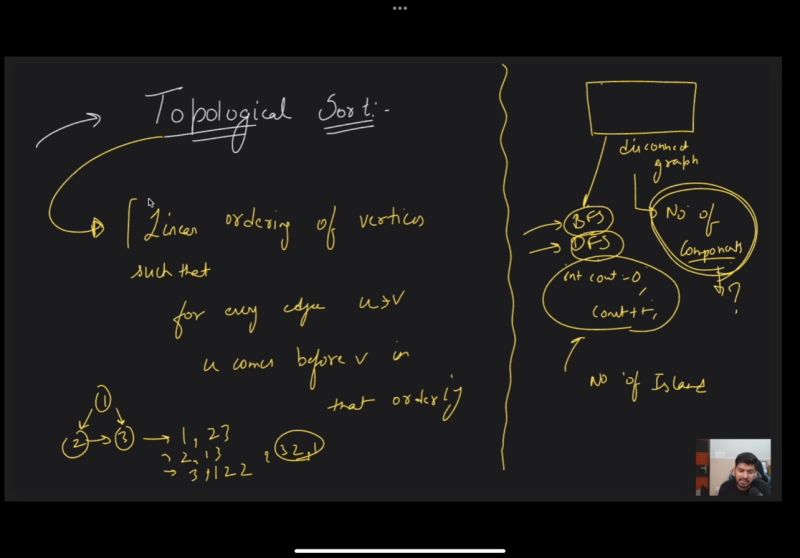 Topological Sort:-
Linear ordering of vertices
such that
for every edge u→v
u comes before v in
that ordering
1
2 → 3 → 1, 23
2, 13
→ 3, 122
32,1
disconnect
graph
BFS
DFS
No of
Components
?
int cout = 0;
Count++;
No of Island